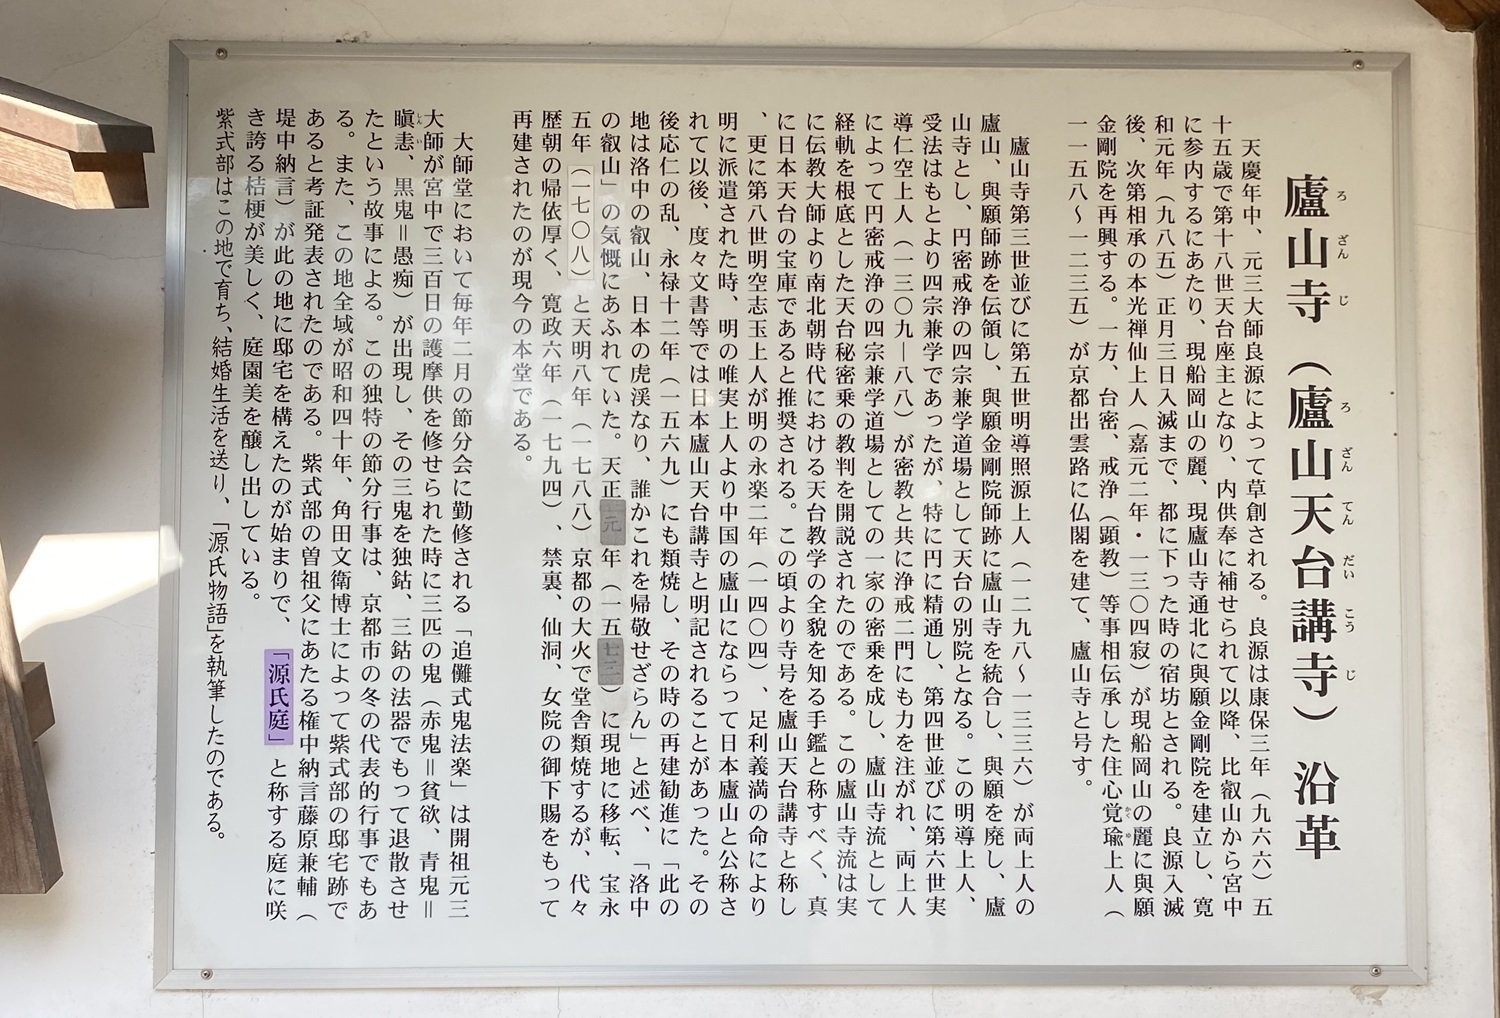 廬山寺（廬山天台講寺）沿革
ろ ざん じ ろ ざん てん だい こう じ
天慶年中、元三大師良源によって草創される。良源は康保三年（九六六）五
十五歳で第十八世天台座主となり、内供奉に補せられて以降、比叡山から宮中
に参内するにあたり、現船岡山の麗、現廬山寺通北に與願金剛院を建立し、寛
和元年（九八五）正月三日入滅まで、都に下った時の宿坊とされる。良源入滅
後、次第相承の本光禅仙上人（嘉元二年・一三〇四寂）が現船岡山の麗に與願
金剛院を再興する。一方、台密、戒浄（顕教）等事相伝承した住心覚瑜上人（
かく ゆ
一一五八～一二三五）が京都出雲路に仏閣を建て、廬山寺と号す。
廬山寺第三世並びに第五世明導照源上人（一二九八～一三三六）が両上人の
廬山、與願師跡を伝領し、與願金剛院師跡に廬山寺を統合し、與願を廃し、廬
山寺とし、円密戒浄の四宗兼学道場として天台の別院となる。この明導上人、
受法はもとより四宗兼学であったが、特に円に精通し、第四世並びに第六世実
導仁空上人（一三〇九―八八）が密教と共に浄戒二門にも力を注がれ、両上人
によって円密戒浄の四宗兼学道場としての一家の密乗を成し、廬山寺流として
経軌を根底とした天台秘密乗の教判を開説されたのである。この廬山寺流は実
に伝教大師より南北朝時代における天台教学の全貌を知る手鑑と称すべく、真
に日本天台の宝庫であると推奨される。この頃より寺号を廬山天台講寺と称し
、更に第八世明空志玉上人が明の永楽二年（一四〇四）、足利義満の命により
明に派遣された時、明の唯実上人より中国の廬山にならって日本廬山と公称さ
れて以後、度々文書等では日本廬山天台講寺と明記されることがあった。その
後応仁の乱、永禄十二年（一五六九）にも類焼し、その時の再建勧進に「此の
地は洛中の叡山、日本の虎渓なり、誰かこれを帰敬せざらん」と述べ、「洛中
の叡山」の気慨にあふれていた。天正元年（一五七三）に現地に移転、宝永
五年（一七〇八）と天明八年（一七八八）京都の大火で堂舎類焼するが、代々
歴朝の帰依厚く、寛政六年（一七九四）、禁裏、仙洞、女院の御下賜をもって
再建されたのが現今の本堂である。
大師堂において毎年二月の節分会に勤修される「追儺式鬼法楽」は開祖元三
大師が宮中で三百日の護摩供を修せられた時に三匹の鬼（赤鬼＝貧欲、青鬼＝
瞋恚、黒鬼＝愚痴）が出現し、その三鬼を独鈷、三鈷の法器でもって退散させ
しん い
たという故事による。この独特の節分行事は、京都市の冬の代表的行事でもあ
る。また、この地全域が昭和四十年、角田文衛博士によって紫式部の邸宅跡で
あると考証発表されたのである。紫式部の曽祖父にあたる権中納言藤原兼輔（
堤中納言）が此の地に邸宅を構えたのが始まりで、「源氏庭」と称する庭に咲
き誇る桔梗が美しく、庭園美を醸し出している。
紫式部はこの地で育ち、結婚生活を送り、「源氏物語」を執筆したのである。